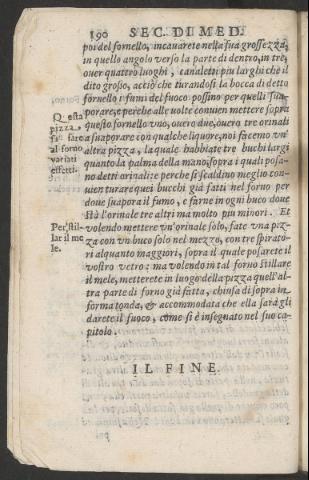 190 SEC. DI MED.
poi del fornello, incauarete nella sua grossezza,
in quello angolo verso la parte di dentro, in tre,
ouer quattro luoghi, canaletti piu larghi che il
dito grosso, acciò che turandosi la bocca di detto
fornello i fumi del fuoco possino per quelli sua-
porare, e perche alle volte conuien mettere sopra
questo fornello vno, ouero due, ouero tre orinali
a suaporare con qualche liquore, noi facemo vn'
altra pizza, la quale habbiate tre buchi largi
quanto la palma della mano, sopra i quali posa-
no detti orinali: e perche si scaldino meglio con-
uien turare quei bucchi già fatti nel forno per
doue suapora il fumo, e farne in ogni buco doue
stà l'orinale tre altri ma molto piu minori. Et
volendo mettere vn'orinale solo, fate vna piz-
za con vn buco solo nel mezzo, con tre spirato-
ri alquanto maggiori, sopra il quale posarete il
vostro vetro: ma volendo in tal forno stillare
il mele, metterete in luogo della pizza quell'al-
tra parte di forno già fatta, chiusa di sopra in
forma tonda, & accommodata che ella sarà gli
darete il fuoco, come si è insegnato nel suo ca-
pitolo.
Questa
pizza
si fare
al forno
variati
effetti.
Per stil-
lar il me
le.
IL FINE.